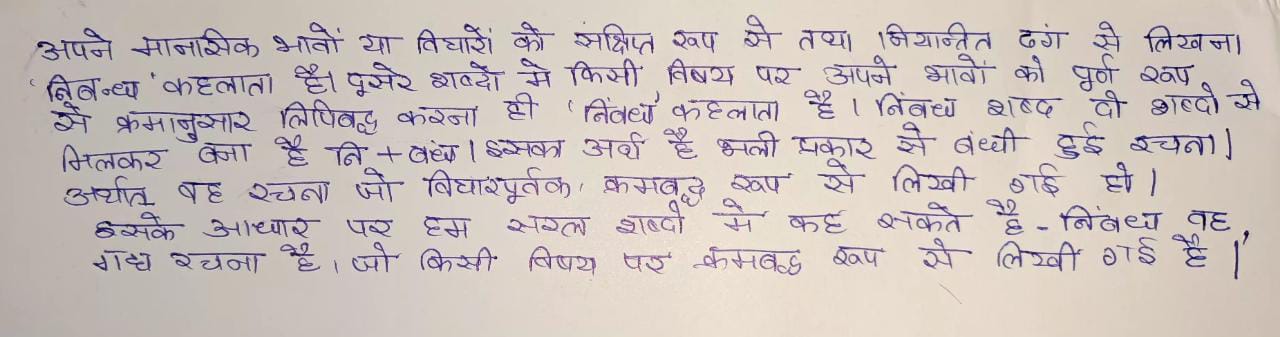 अपने मानसिक भावों या विचारों को संक्षिप्त रूप से तथा नियन्त्रित ढंग से लिखना।
'निबन्ध' कहलाता है। दूसरे शब्दों मे किसी विषय पर अपने भावों को पूर्ण रूप
से क्रमानुसार लिपिबद्ध करना ही 'निंबध' कहलाता है। निंबध शब्द दो शब्दो से
मिलकर बना है नि + बंध। इसका अर्थ है भली प्रकार से बंधी हुई रचना।
अर्थात् वह रचना जो विचारपूर्वक, क्रमबद्ध रूप से लिखी गई हो।
इसके आधार पर हम सरल शब्दों मे कह सकते है - निंबध वह,
गद्य रचना है, जो किसी विषय पर क्रमबद्ध रूप से लिखी गई है।